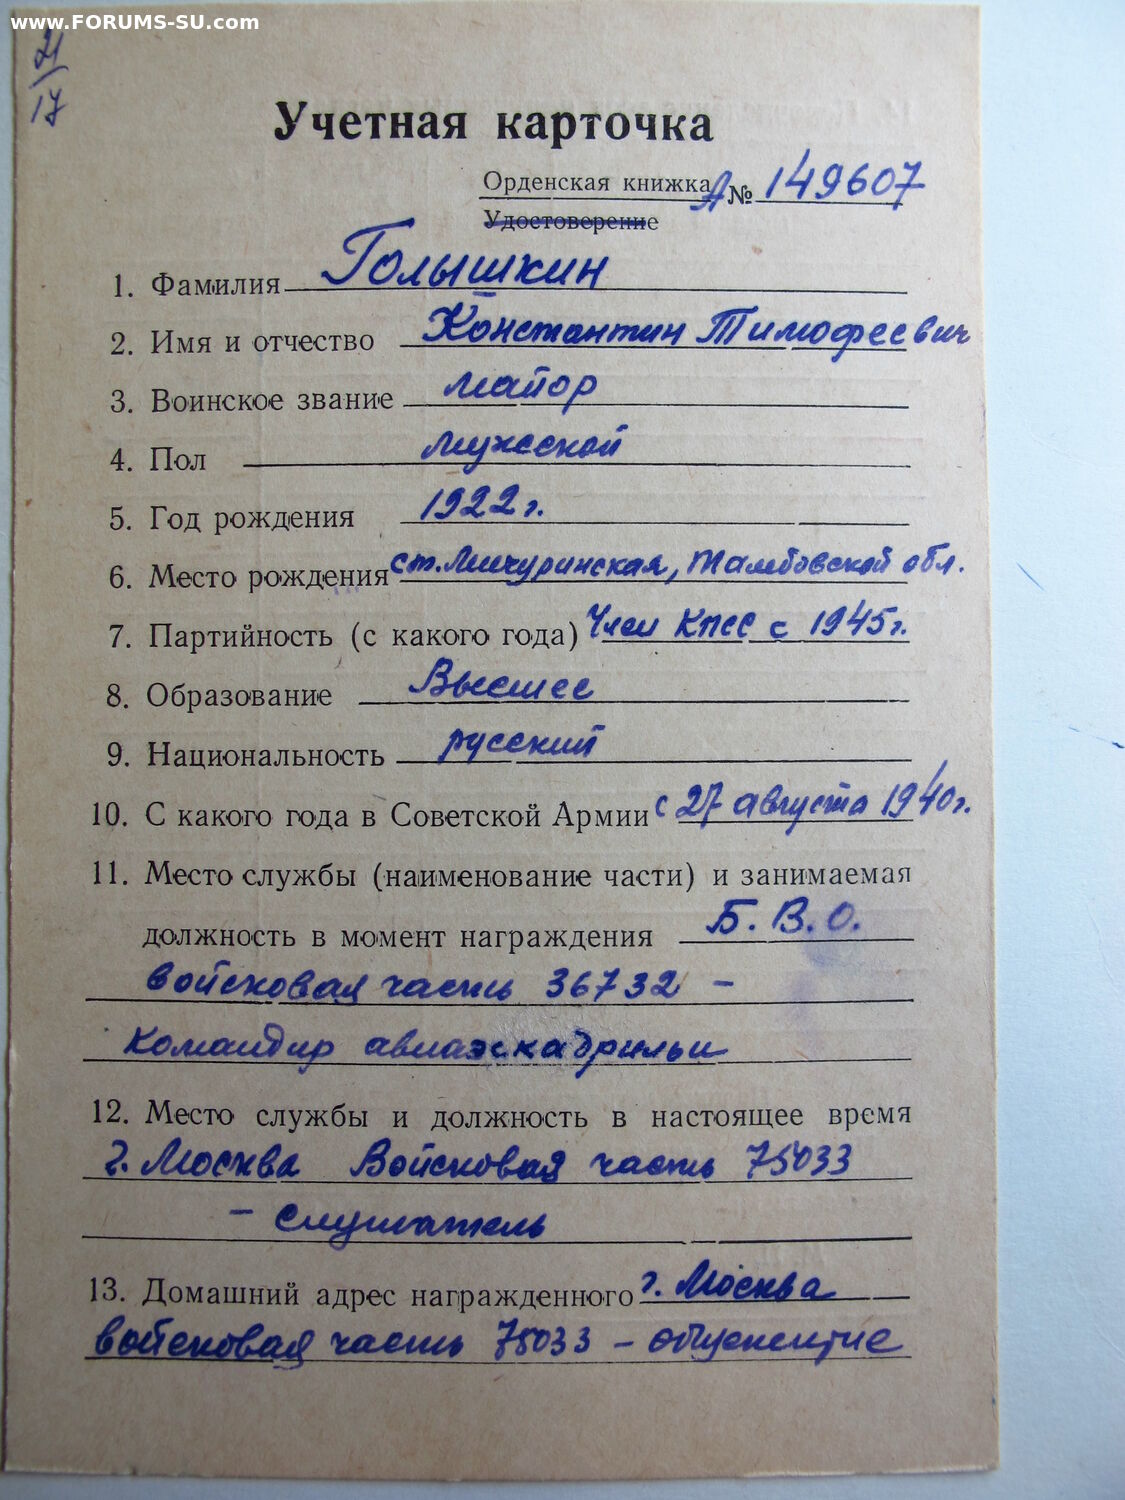 www.FORUMS-SU.com
21
17
Учетная карточка
Орденская книжка А № 149607
Удостоверение
1. Фамилия Голышкин
2. Имя и отчество Константин Тимофеевич
3. Воинское звание майор
4. Пол мужской
5. Год рождения 1922 г.
6. Место рождения ст. Мичуринская, Тамбовской обл.
7. Партийность (с какого года) Член КПСС с 1945 г.
8. Образование Высшее
9. Национальность русский
10. С какого года в Советской Армии с 27 августа 1940 г.
11. Место службы (наименование части) и занимаемая
должность в момент награждения Б. В. О.
войсковая часть 36732 –
Командир авиаэскадрильи
12. Место службы и должность в настоящее время
г. Москва Войсковая часть 75033
– слушатель
13. Домашний адрес награжденного г. Москва
войсковая часть 75033 – общежитие